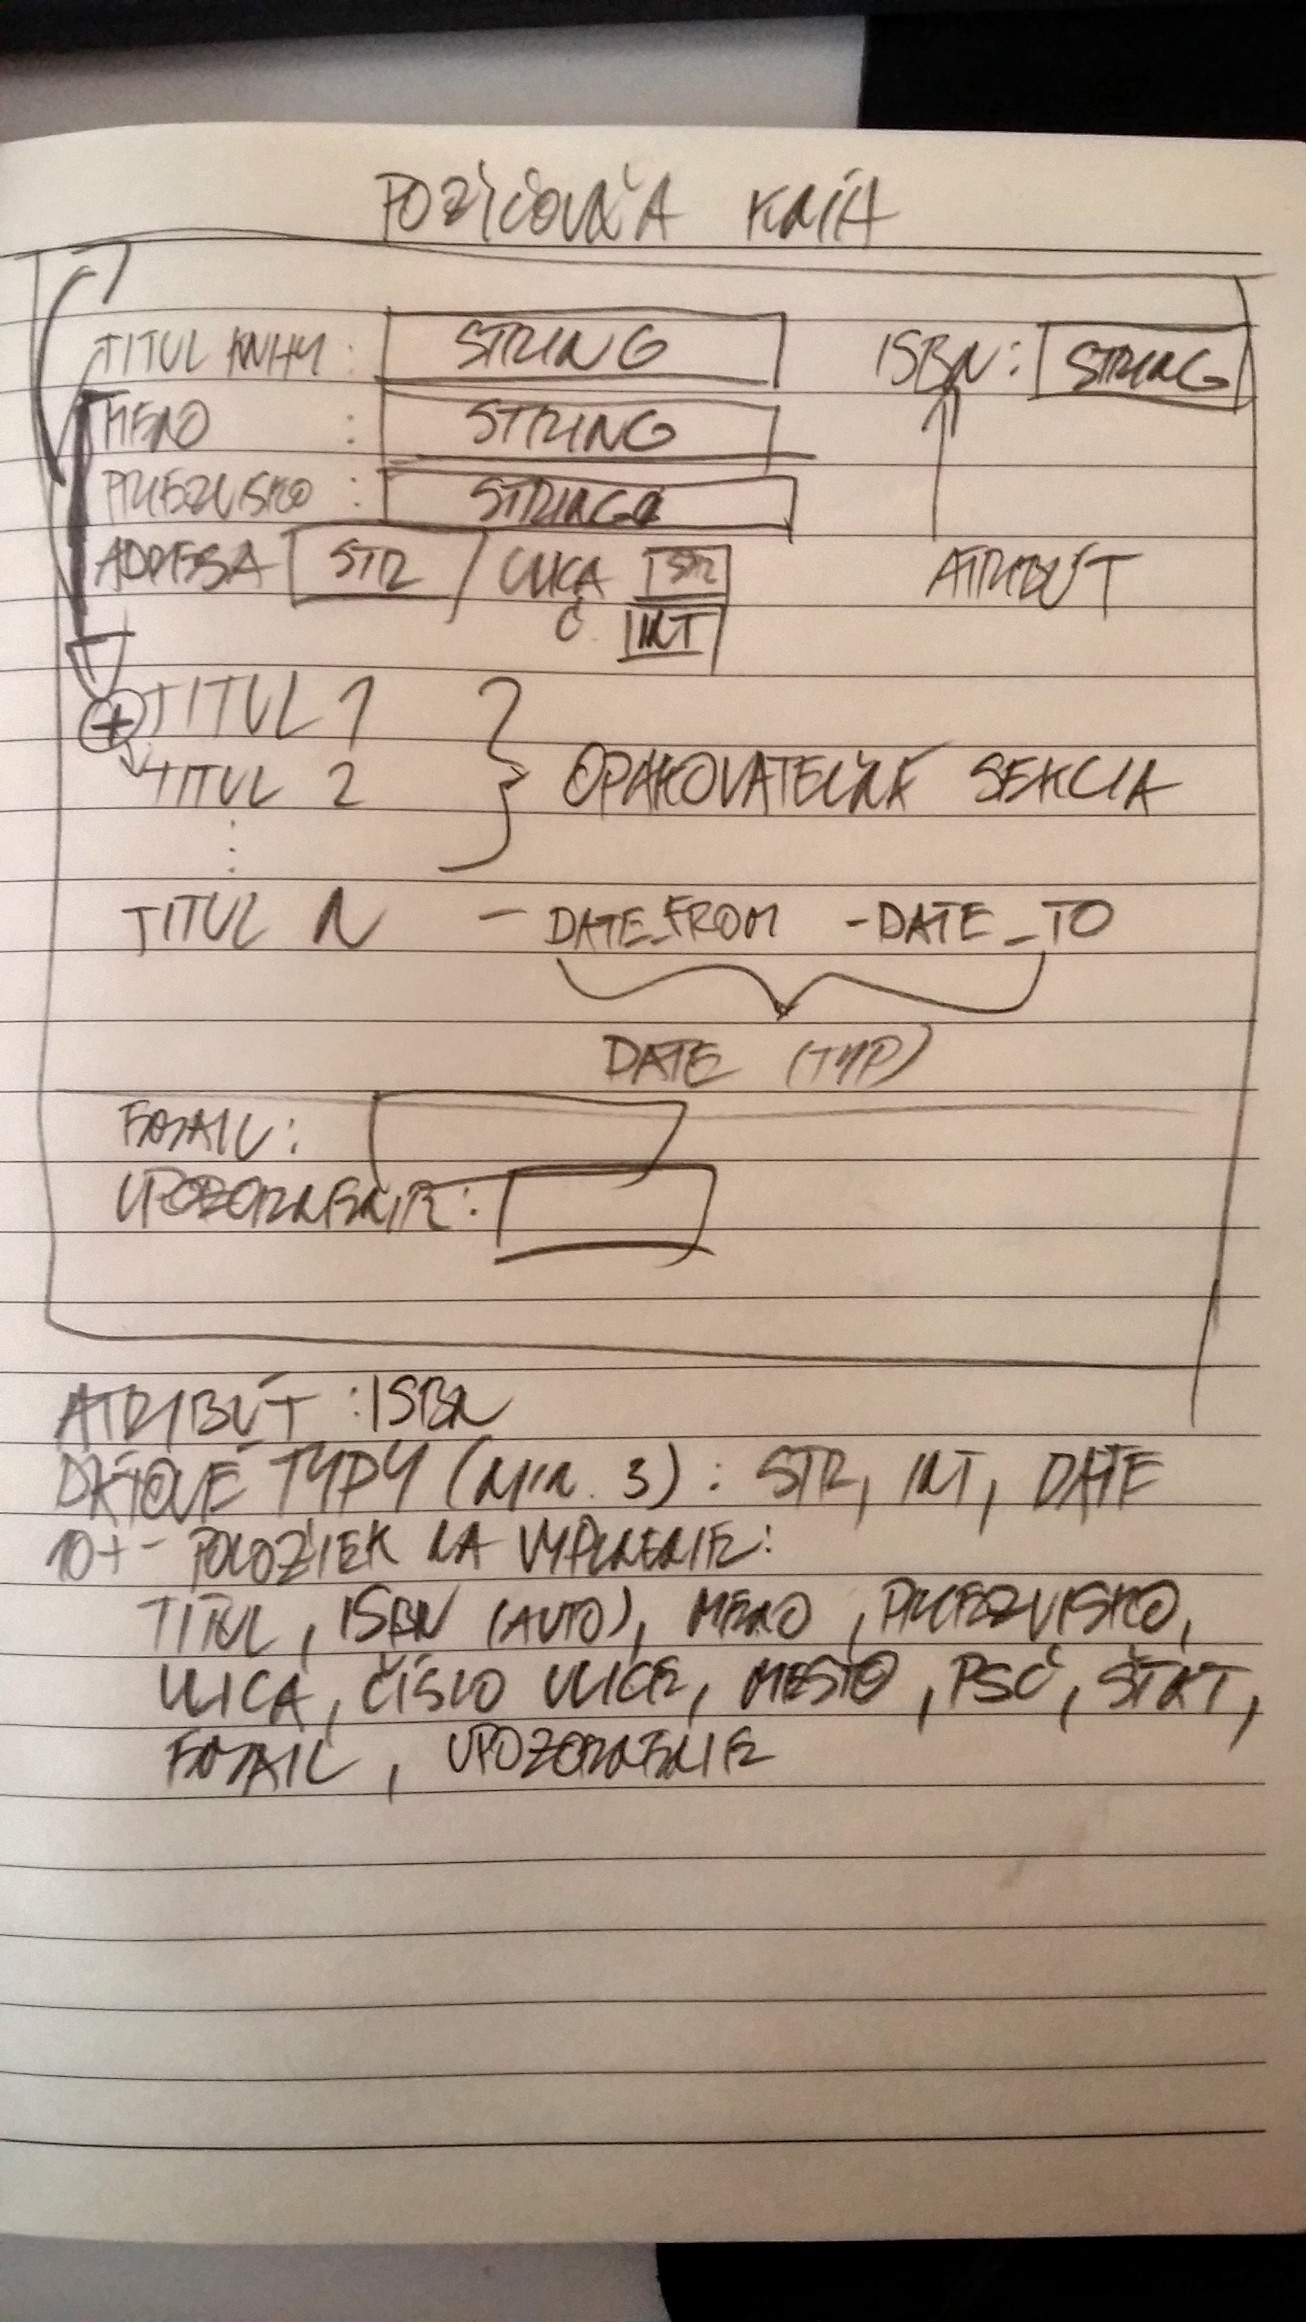 POŽIČOVŇA KNÍH
TITUL KNIHY : STRING ISBN : STRING
MENO : STRING
PRIEZVISKO : STRING
ADRESA STR / ULICA STR
Č. INT
ATRIBÚT
+ TITUL 1
TITUL 2
OPAKOVATEĽNÁ SEKCIA
TITUL N - DATE_FROM - DATE_TO
DATE (TYP)
EMAIL :
UPOZORNENIE :
ATRIBÚT : ISBN
DÁTOVÉ TYPY (MIN. 3) : STR, INT, DATE
10+- POLOŽIEK NA VYPLNENIE:
TITUL, ISBN (AUTO), MENO, PRIEZVISKO,
ULICA, ČÍSLO ULICE, MESTO, PSČ, ŠTÁT,
EMAIL, UPOZORNENIE